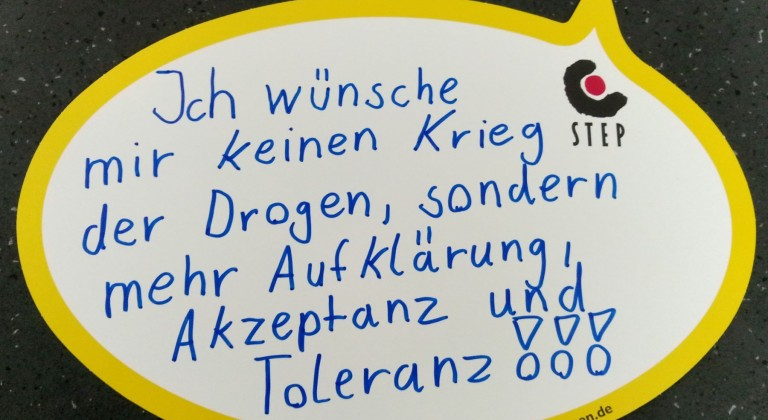 Ich wünsche
mir keinen Krieg
der Drogen, sondern
mehr Aufklärung,
Akzeptanz und
Toleranz!!!
STEP
en.de